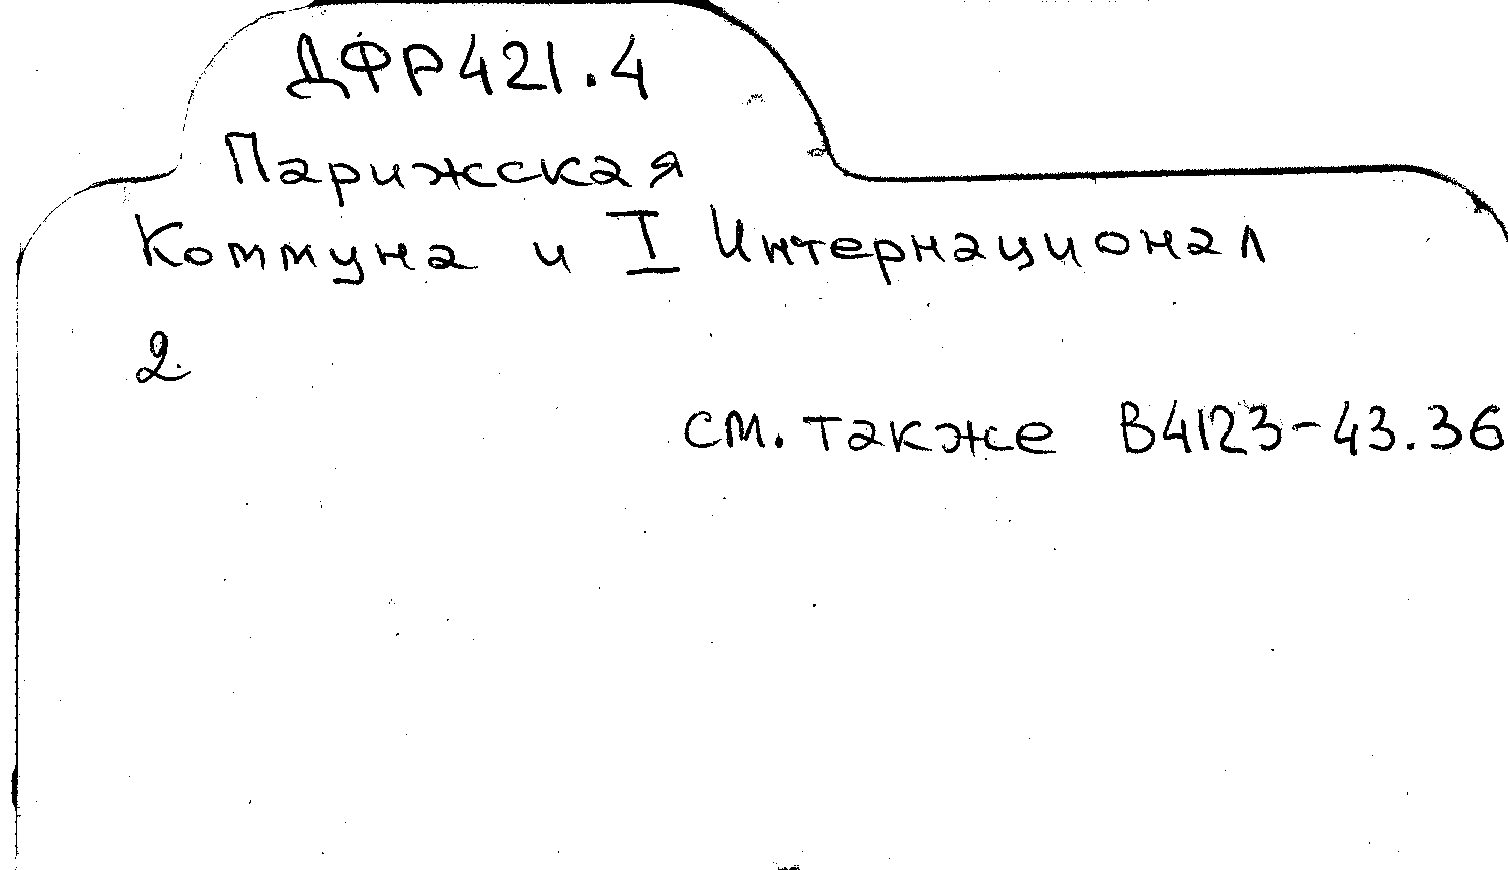 ДФР421.4
Парижская
Коммуна и I Интернационал
2
см. также В4123-43.36